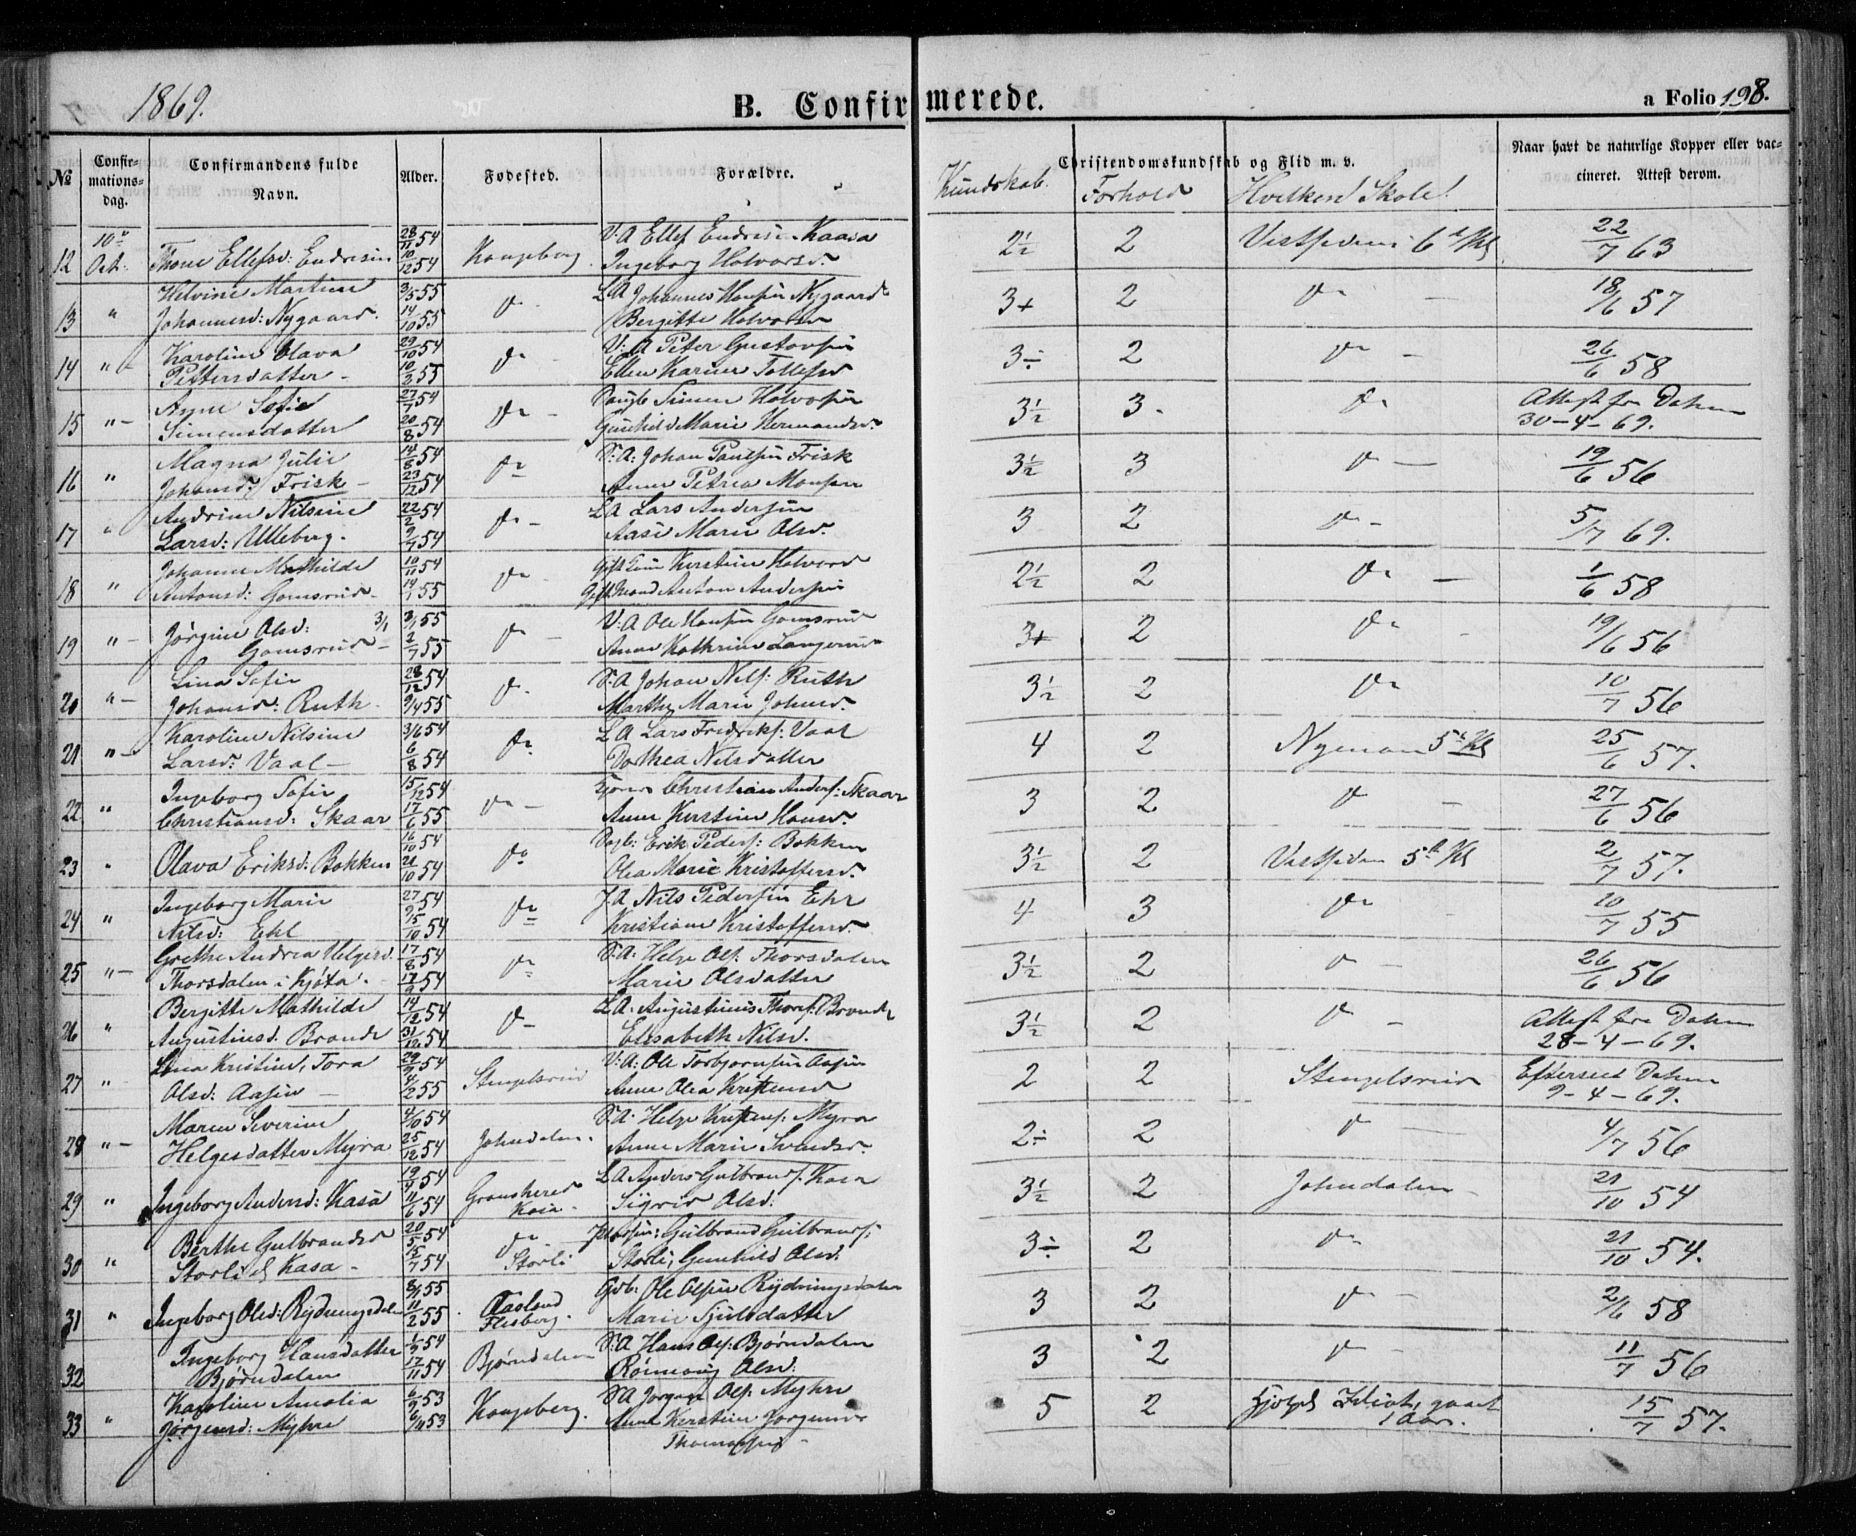 1869.
B. Confirmerede.
a Folio 198.
№ Confirmationsdag. Confirmandens fulde Navn. Alder. Fødested. Forældre. Christendomskundskab og Flid m. v. Naar havt de naturlige Kopper eller vaccineret. Attest derom.
Kundskab. Forhold Hvilken Skole!
12 10de Oct. Thone Ellefsd: Endresen 28/11 54 10/12 54 Kongsberg. V: A Ellef Endresen Kaasa Ingeborg Halvorsd. 2½ 2 Vestsiden 6te Kl 22/7 63
13 " Helvine Martine Johannesd: Nygaard. 3/5 55 14/10 55 do - L A Johannes Hansen Nygaard Bergitte Halvorsd 3+ 2 do - 18/6 57
14 " - Karoline Olava Pettersdatter - 29/10 54 10/2 55 do - V: A Peter Gustavsen Ellen Karine Tollefsd 3÷ 2 do - 26/6 58
15 " - Anne Sofie Simensdatter 27/7 54 20/8 54 do - Simen Halvorsen Gunhild Marie Hermandsd. 3½ 3. do Attest fra Dahm 30-4-69.
16 " Magna Julie Johansd: Frisk - 14/8 54 23/12 54 do S: A: Johan Paulsen Frisk Anne Petrea Monsen 3½ 3 do - 19/6 56
17 " Andrine Nilsine Larsd: Ulleberg. 22/2 54 9/7 54 do - L A Lars Andersen Aase Marie Olsd. 3 2 do - 5/7 69.
18 " Johanne Mathilde Antonsd: Gomsrud - 10/11 54 14/1 55 do - Kirstine Halvorsd Gift Mand Anton Andersen 2½ 2 do - 1/6 58
19 " - Jørgine Olsd: 3/1 Gomsrud - 3/1 55 2/7 55 do - V: A Ole Hansen Gomsrud Anne Kathrine Langerud 3+ 2 do - 19/6 56
20 " - Lina Sofie Johansd: Ruth. 28/12 54 9/4 55 do. S: A Johan Nilss: Ruth Marthe Marie Johnsd. 3½ 2 do 10/7 56
21 " - Karoline Nilsine Larsd: Vaal - 3/6 54 6/8 54 do L A Lars Fredriks: Vaal Dorthea Nilsdatter 4 2 Nymoen 5te Kl 25/6 57.
22 " Ingeborg Sofie Christiansd: Skaar 15/12 54 17/6 55 do - Christian Anders: Skaar Anne Kirstine Hansd. 3 2 do - 27/6 56
23 " Olava Eriksd: Bokken 16/10 54 21/10 54 do Erik Peders: Bokken Olea Marie Kristoffersd. 3½ 2 Vestsiden 5te Kl 2/7 57.
24 " Ingeborg Marie Nilsd: Ekl 27/9 54 15/10 54 do J A Nils Pedersen Ekl Kristiane Kristoffersd. 4 3 do - 10/7 55
25 " - Grethe Andrea Helgesd. Thorsdalen i Kjøta. 17/8 54 17/9 54 do S: A: Helge Ols: Thorsdalen Marie Olsdatter 3½ 2 do - 26/6 56
26 " Bergitte Mathilde Augustinsd: Brande 14/12 54 31/12 54 do - L A: Augustinus Thors: Brande Elisabeth Nilsd. 3½ 2 do - Attest fra Dahm 28-4-69.
27 " Lina Kristine, Tora Olsd: Aasen - 29/9 54 4/2 55 Stengelsrud V: A: Ole Torbjørnsen Aasen Anne Olea Kristensd 2 2 Stengelsrud Efterseet Dahm 9-4-69.
28 " - Maren Severine Helgesdatter Myra 4/10 54 25/12 54 Johndalen. S: A: Helge Kristens: Myra Anne Marie Svendsd. 2÷ 2 do - 4/7 56
29 " Ingeborg Andersd: Kasa 19/4 54 11/6 54 Gransherred Kasa. L A Anders Gulbrands: Kasa Sigrid Olsd: 3½ 2 Johndalen - 21/10 54
30 " Birthe Gulbrandsd Storli el Kasa - 20/5 54 15/7 54 do - Storli Gulbrand Gulbrands: Storli, Gunhild Olsd: 3÷ 2 do 21/10 54.
31 " Ingeborg Olsd: Rydningsdalen 8/1 55 11/2 55 Aasland Flesberg. Gdb: Ole Olsen Rydningsdalen Marie Sjulsdatter 3 2 do - 2/6 58
32 Ingeborg Hansdatter Bjørndalen 1/9 54 17/11 54 Bjørndalen S: A Hans Ols: Bjørndalen Rønnaug Olsd: 3 2 do - 11/7 56
33 " Karoline Amalia Jørgensd: Myhre 6/9 53 6/11 53 Kongsberg. S A Jørgen Ols: Myhre Anne Kirstine Jørgensd Thomassen - 5 2 Hjelpel Idiot, gaaet 1 Aar. 15/7 57.